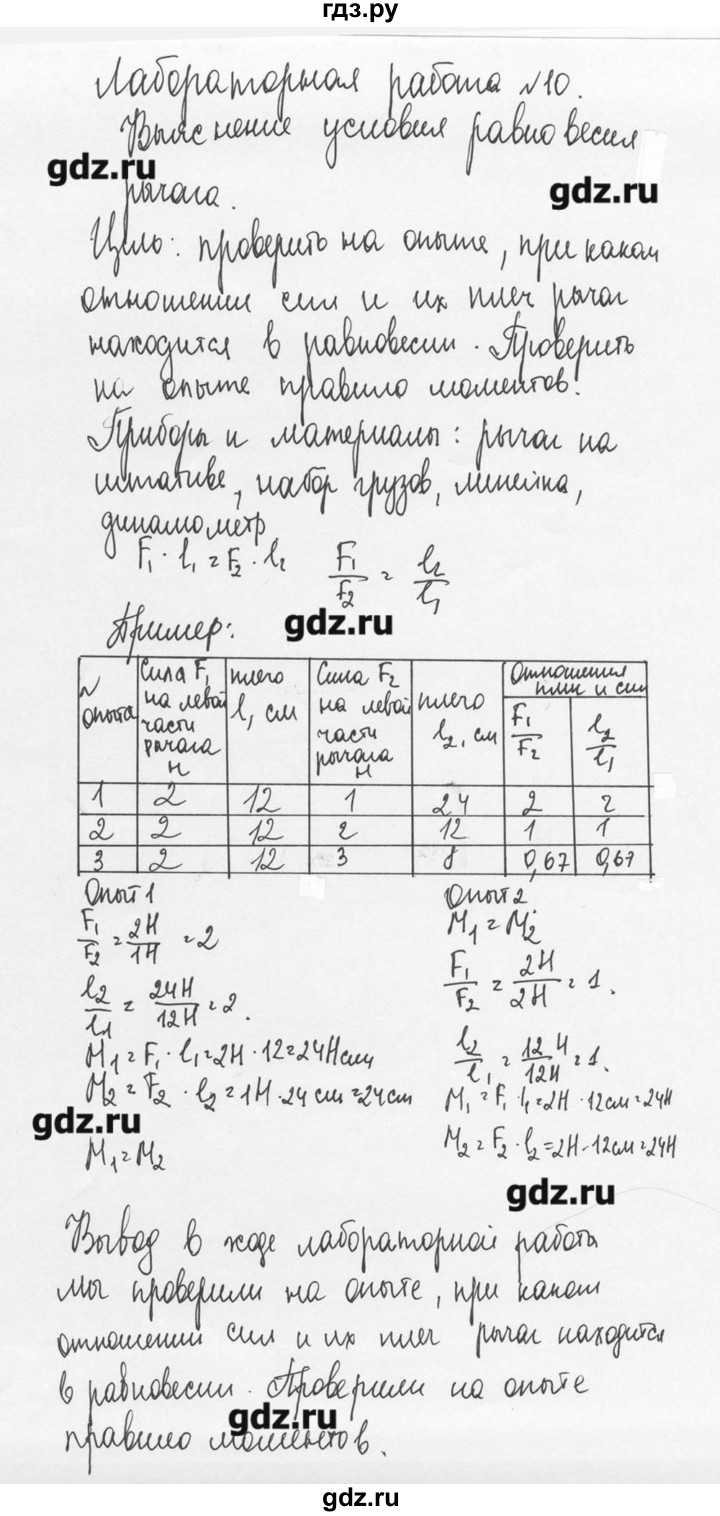 гдз.ру
Лабораторная работа №10.
Выяснение условия равновесия
gdz.ru
gdz.ru
рычага.
Цель: проверить на опыте, при каком
отношении сил и их плеч рычаг
находится в равновесии. Проверить
на опыте правило моментов.
Приборы и материалы: рычаг на
штативе, набор грузов, линейка,
динамометр
F₁ · l₁ = F₂ · l₂ F₁/F₂ = l₂/l₁
Пример:
gdz.ru
№ опыта | Сила F₁ на левой части рычага Н | плечо l, см | Сила F₂ на левой части рычага Н | плечо l₂, см | Отношения плеч и сил F₁/F₂ | l₂/l₁
1 | 2 | 12 | 1 | 24 | 2 | 2
2 | 2 | 12 | 2 | 12 | 1 | 1
3 | 2 | 12 | 3 | 8 | 0,67 | 0,67
Опыт 1
F₁/F₂ = 2Н/1Н = 2
l₂/l₁ = 24Н/12Н = 2.
M₁ = F₁ · l₁ = 2Н · 12 = 24Нсм
M₂ = F₂ · l₂ = 1Н · 24 см = 24см
gdz.ru
M₁ = M₂
Опыт 2
M₁ = M₂
F₁/F₂ = 2Н/2Н = 1.
l₂/l₁ = 12Н/12Н = 1.
M₁ = F₁ · l₁ = 2Н · 12см = 24Н
M₂ = F₂ · l₂ = 2Н · 12см = 24Н
gdz.ru
Вывод в ходе лабораторной работы
мы проверили на опыте, при каком
отношении сил и их плеч рычаг находится
в равновесии. Проверили на опыте
gdz.ru
правило моментов.
gdz.ru